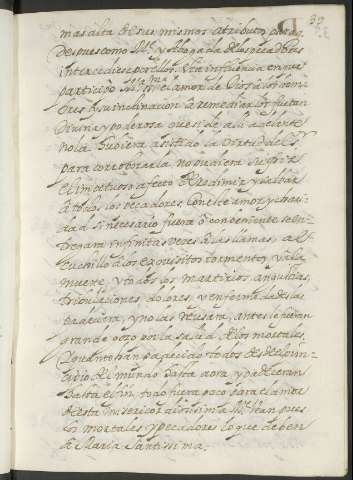 39
mas alta de sus mismos atributos para q̃
despues como M.e y Abogada de los pecadores
intercediese por ellos. Esta influencia en que
participo M.a SS.ma el amor de Dios a los hom-
bres y su inclinacion a remediarlos fue tan
Divina y poderosa que si de alli adelante
no la hubiera asistido la Virtud de el S.r
para corroborarla no pudiera sufrir
el impetuoso afecto de redimir y salvar
a todos los pecadores. Con este amor y chari-
dad si necesario fuera o conveniente se en-
tregara infinitas veces a las llamas, al
cuchillo a los exquisitos tormentos y a la
muerte y todos los martirios, angustias,
tribulaciones, dolores, y enfermedades las
padeciera, y no las reusara, antes le fueran
grande gozo por la salud de los mortales.
Quanto han padecido todos desde el prin-
cipio de el mundo hasta aora y padeceran
hasta el fin, todo fuera poco para el amor
de esta misericordiosisima M.e Vean pues
los mortales y pecadores lo que deben
a Maria Santissima.